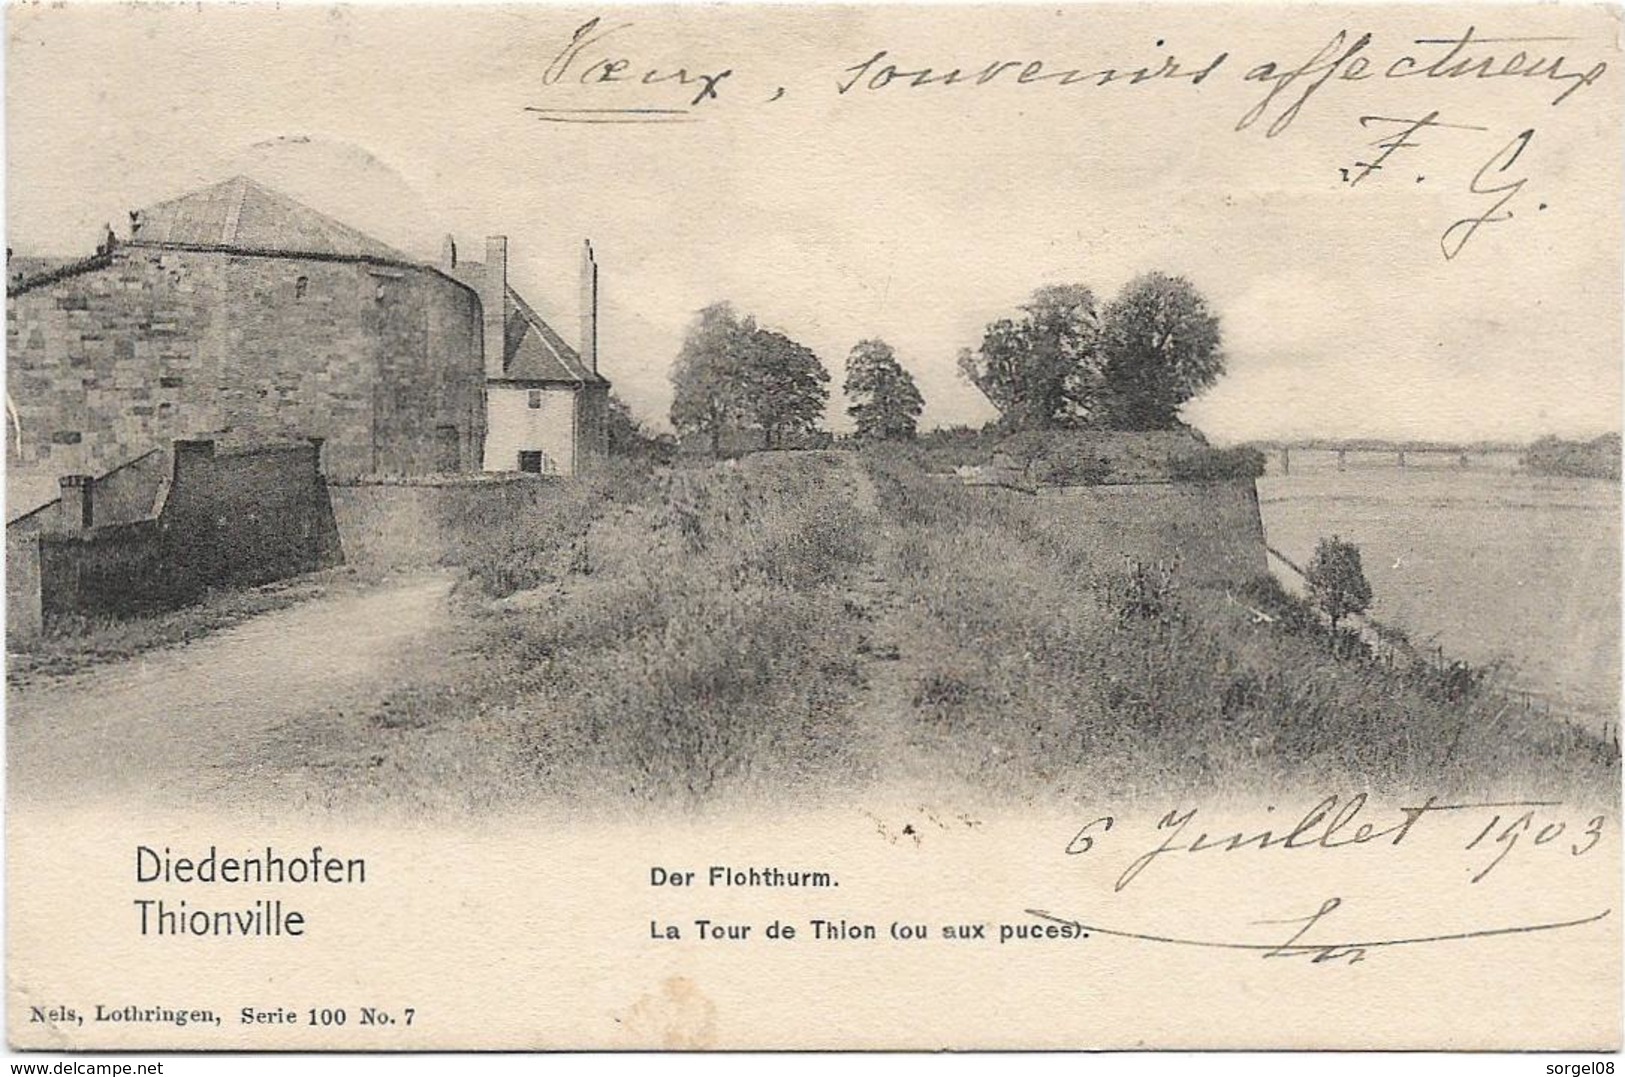 Vœux, souvenirs affectueux
F. G.
6 Juillet 1903
Diedenhofen
Thionville
Der Flohthurm.
La Tour de Thion (ou aux puces).
Nels, Lothringen, Serie 100 No. 7
www.delcampe.net
sorgel08